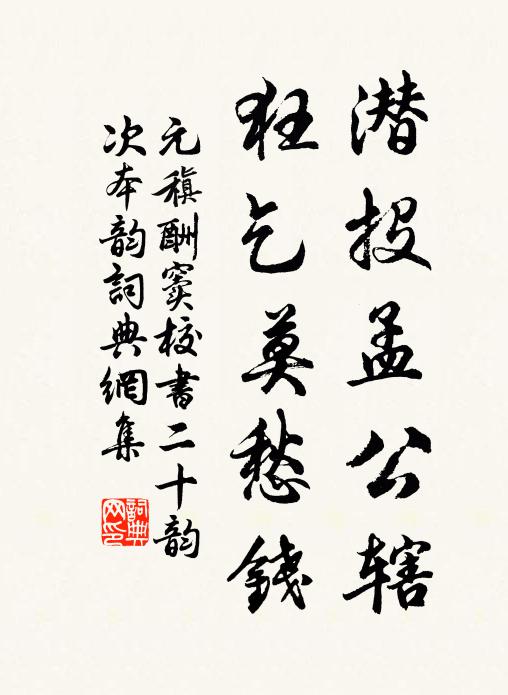 潜投孟公辖
狂乞莫愁錢
元稹酬窦校書二十韵
次本韵詞典網集
詞典网印